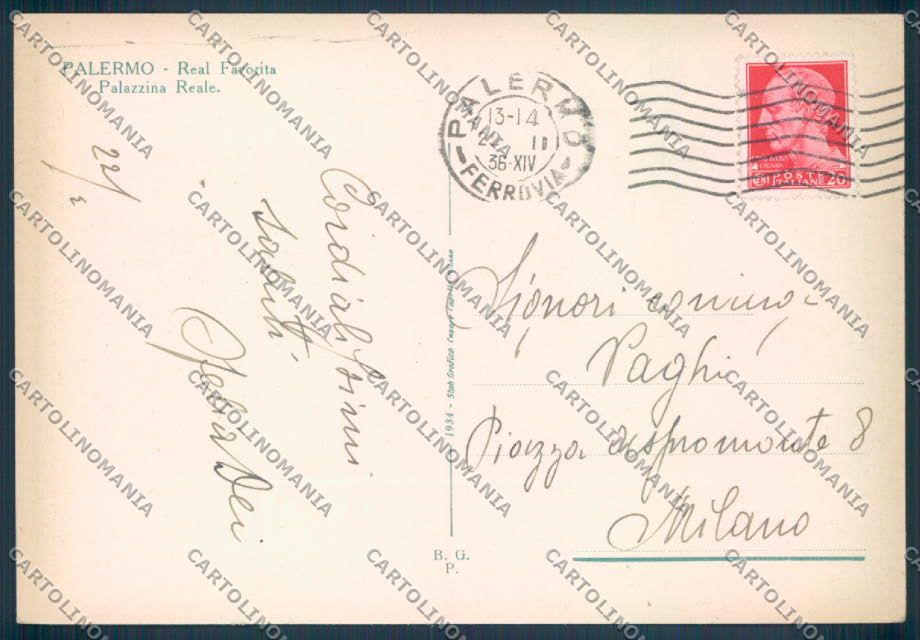 PALERMO - Real Favorita
Palazzina Reale.
22/2
Cordialissimi
saluti.
PALERMO
13-14
22 II
36·XIV
FERROVIA
POSTE
CENT ITALIANE 20
1934 - Stab. Grafico Cesare
Signori
Vaghi
Piazza Aspromonte 8
Milano
B. G.
P.
CARTOLINOMANIA